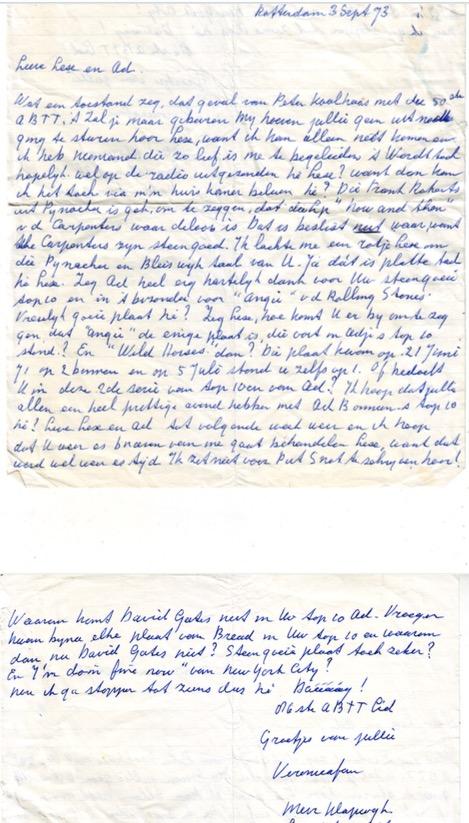 Rotterdam 3 Sept 73
Lieve Lexe en Ad.
Wat een toestand zeg, dat geval van Peter Koelhaas met die 50ste
ABTT. 't Zal je maar gebeuren My hoeven jullie geen uit
ging te sturen hoor Lexe, want ik kan alleen nets komen en
ik heb niemand die zo lief is me te begeleiden. Wordt toch
hopelijk wel op de radio uitgezonden hè Lexe? want dan kan
ik het toch via m'n huiskamer beluis hè? Die Frank Roberts
uit Pynacker is gek, om te zeggen, dat die hip "Now and then"
v d Carpenters waardeloos is Dat is beslist niet waar, want
the Carpenters zyn steengoed. Ik lachte me een rotje Lexe om
die Pynacker en Bleiswyk taal van U. Ja dát is platte taal
hè Lexe. Zeg Ad heel erg hartelyk dank voor Uw steengoeie
top 10 en in 't byzonder voor "Angie" v d Rolling Stones.
Vreselyk goeie plaat hè? Zeg Lexe, hoe komt U er by om te zeg
gen, dat "Angie" de enige plaat is, die ooit in Adje's top 10
stond? En "Wild Horses" dan? Die plaat kwam op 21 Juni
71 op 2 binnen en op 5 Juli stond U zelfs op 1. Of bedoelt
U in deze 2de serie van top 10en van Ad? Ik hoop dat jullie
allen een heel prettige avond hebben met Ad Bouman's top 10
hè? Lieve Lexe en Ad tot volgende week weer en ik hoop
dat U weer es brieven van me gaat behandelen Lexe, want dat
werd wel weer es tyd. Ik zet niet voor Put Snot te schryven hoor!
Waarom komt David Gates niet in Uw top 10 Ad. Vroeger
kwam byna elke plaat van Bread in Uw top 10 en waarom
dan nu David Gates niet? Steengoeie plaat toch zeker?
En "I'm doin' fine now" van New York City?
nou ik ga stoppen tot ziens dus hè Daiiiiiiig!
ABTT Lid
Groetjes van jullie
Veronicafan